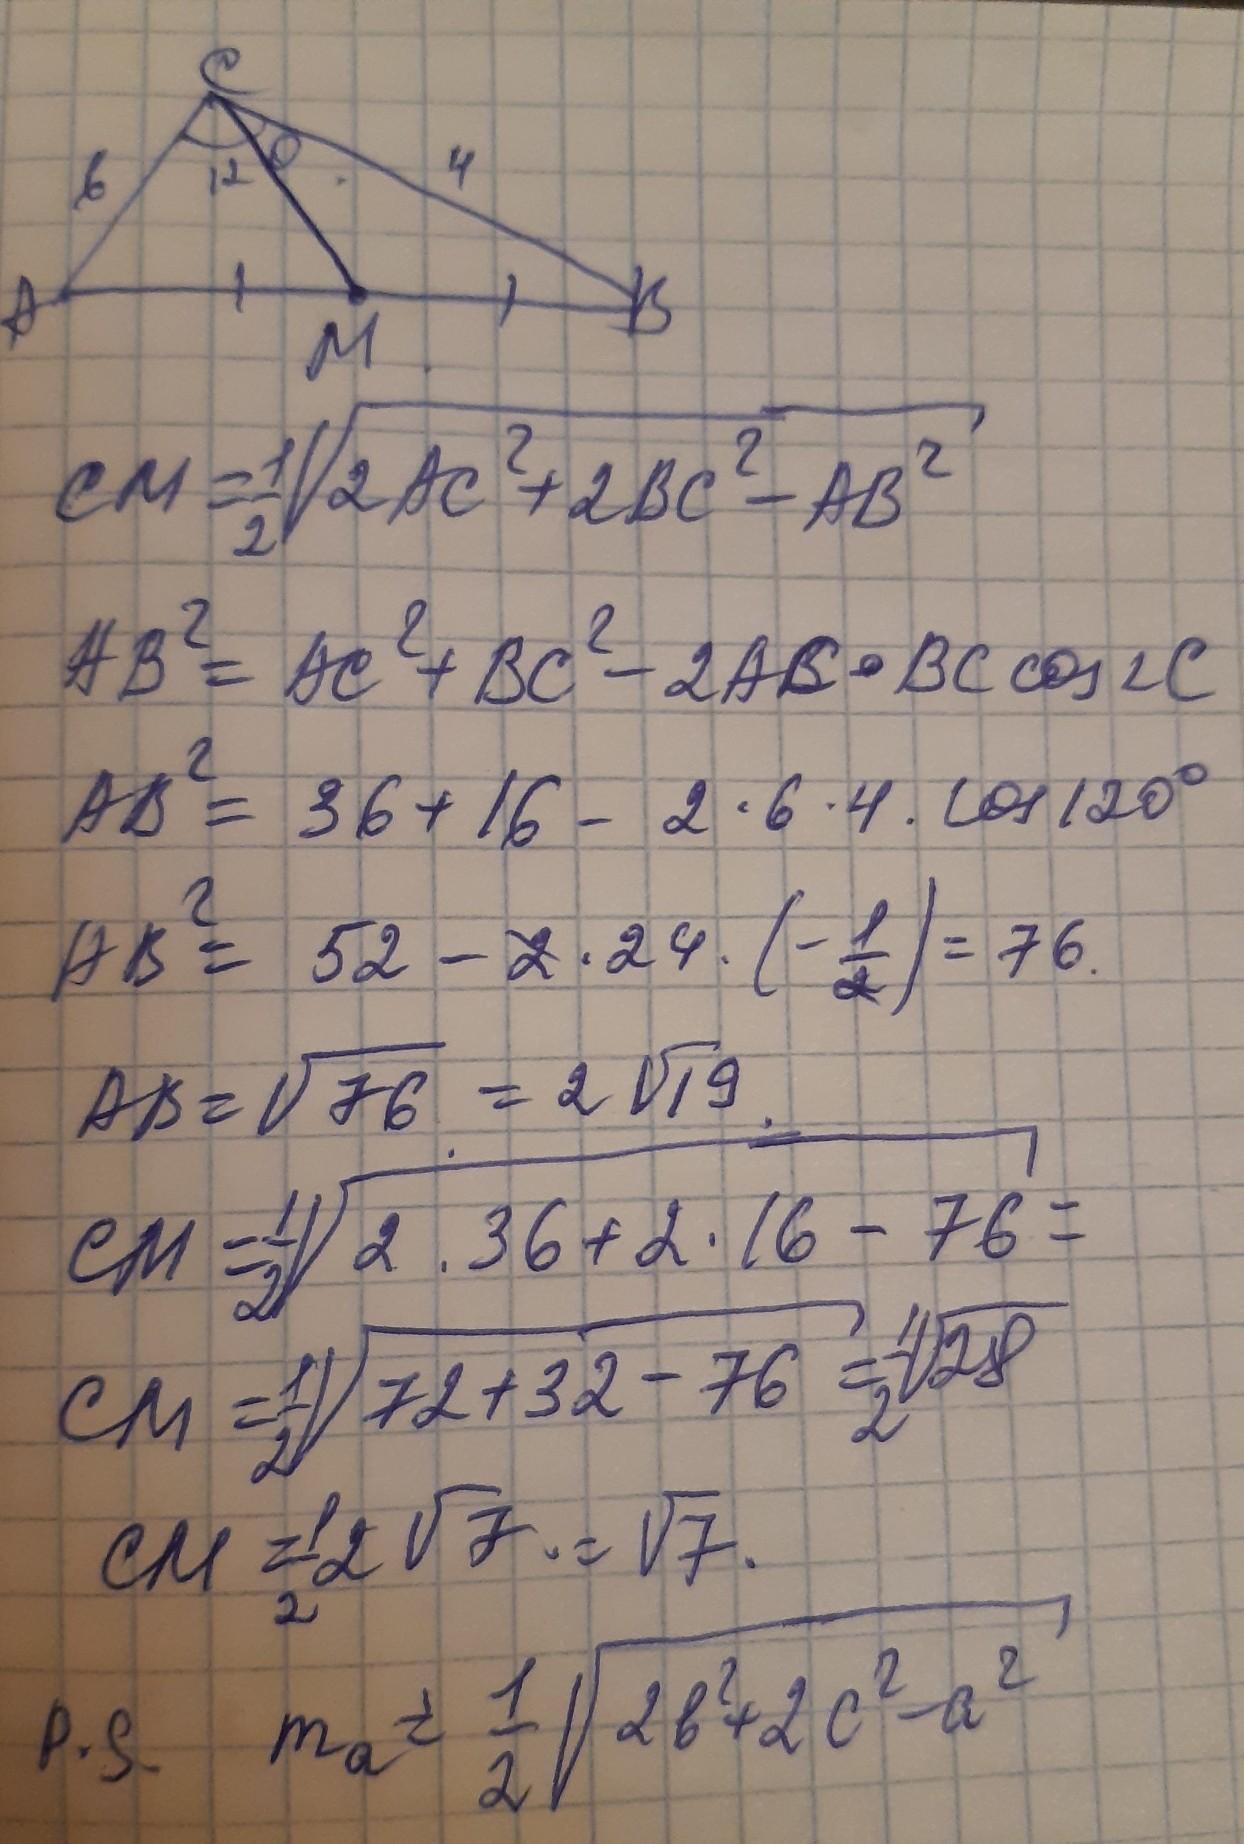 C
6
120
4
A
M
B
CM = 1/2 √(2AC² + 2BC² - AB²)
AB² = AC² + BC² - 2AC • BC cos∠C
AB² = 36 + 16 - 2 · 6 · 4 · cos 120°
AB² = 52 - 2 · 24 · (-1/2) = 76.
AB = √76 = 2√19.
CM = 1/2 √(2 · 36 + 2 · 16 - 76) =
CM = 1/2 √(72 + 32 - 76) = 1/2 √28
CM = 1/2 2√7 = √7.
P.S. mₐ = 1/2 √(2b² + 2c² - a²)